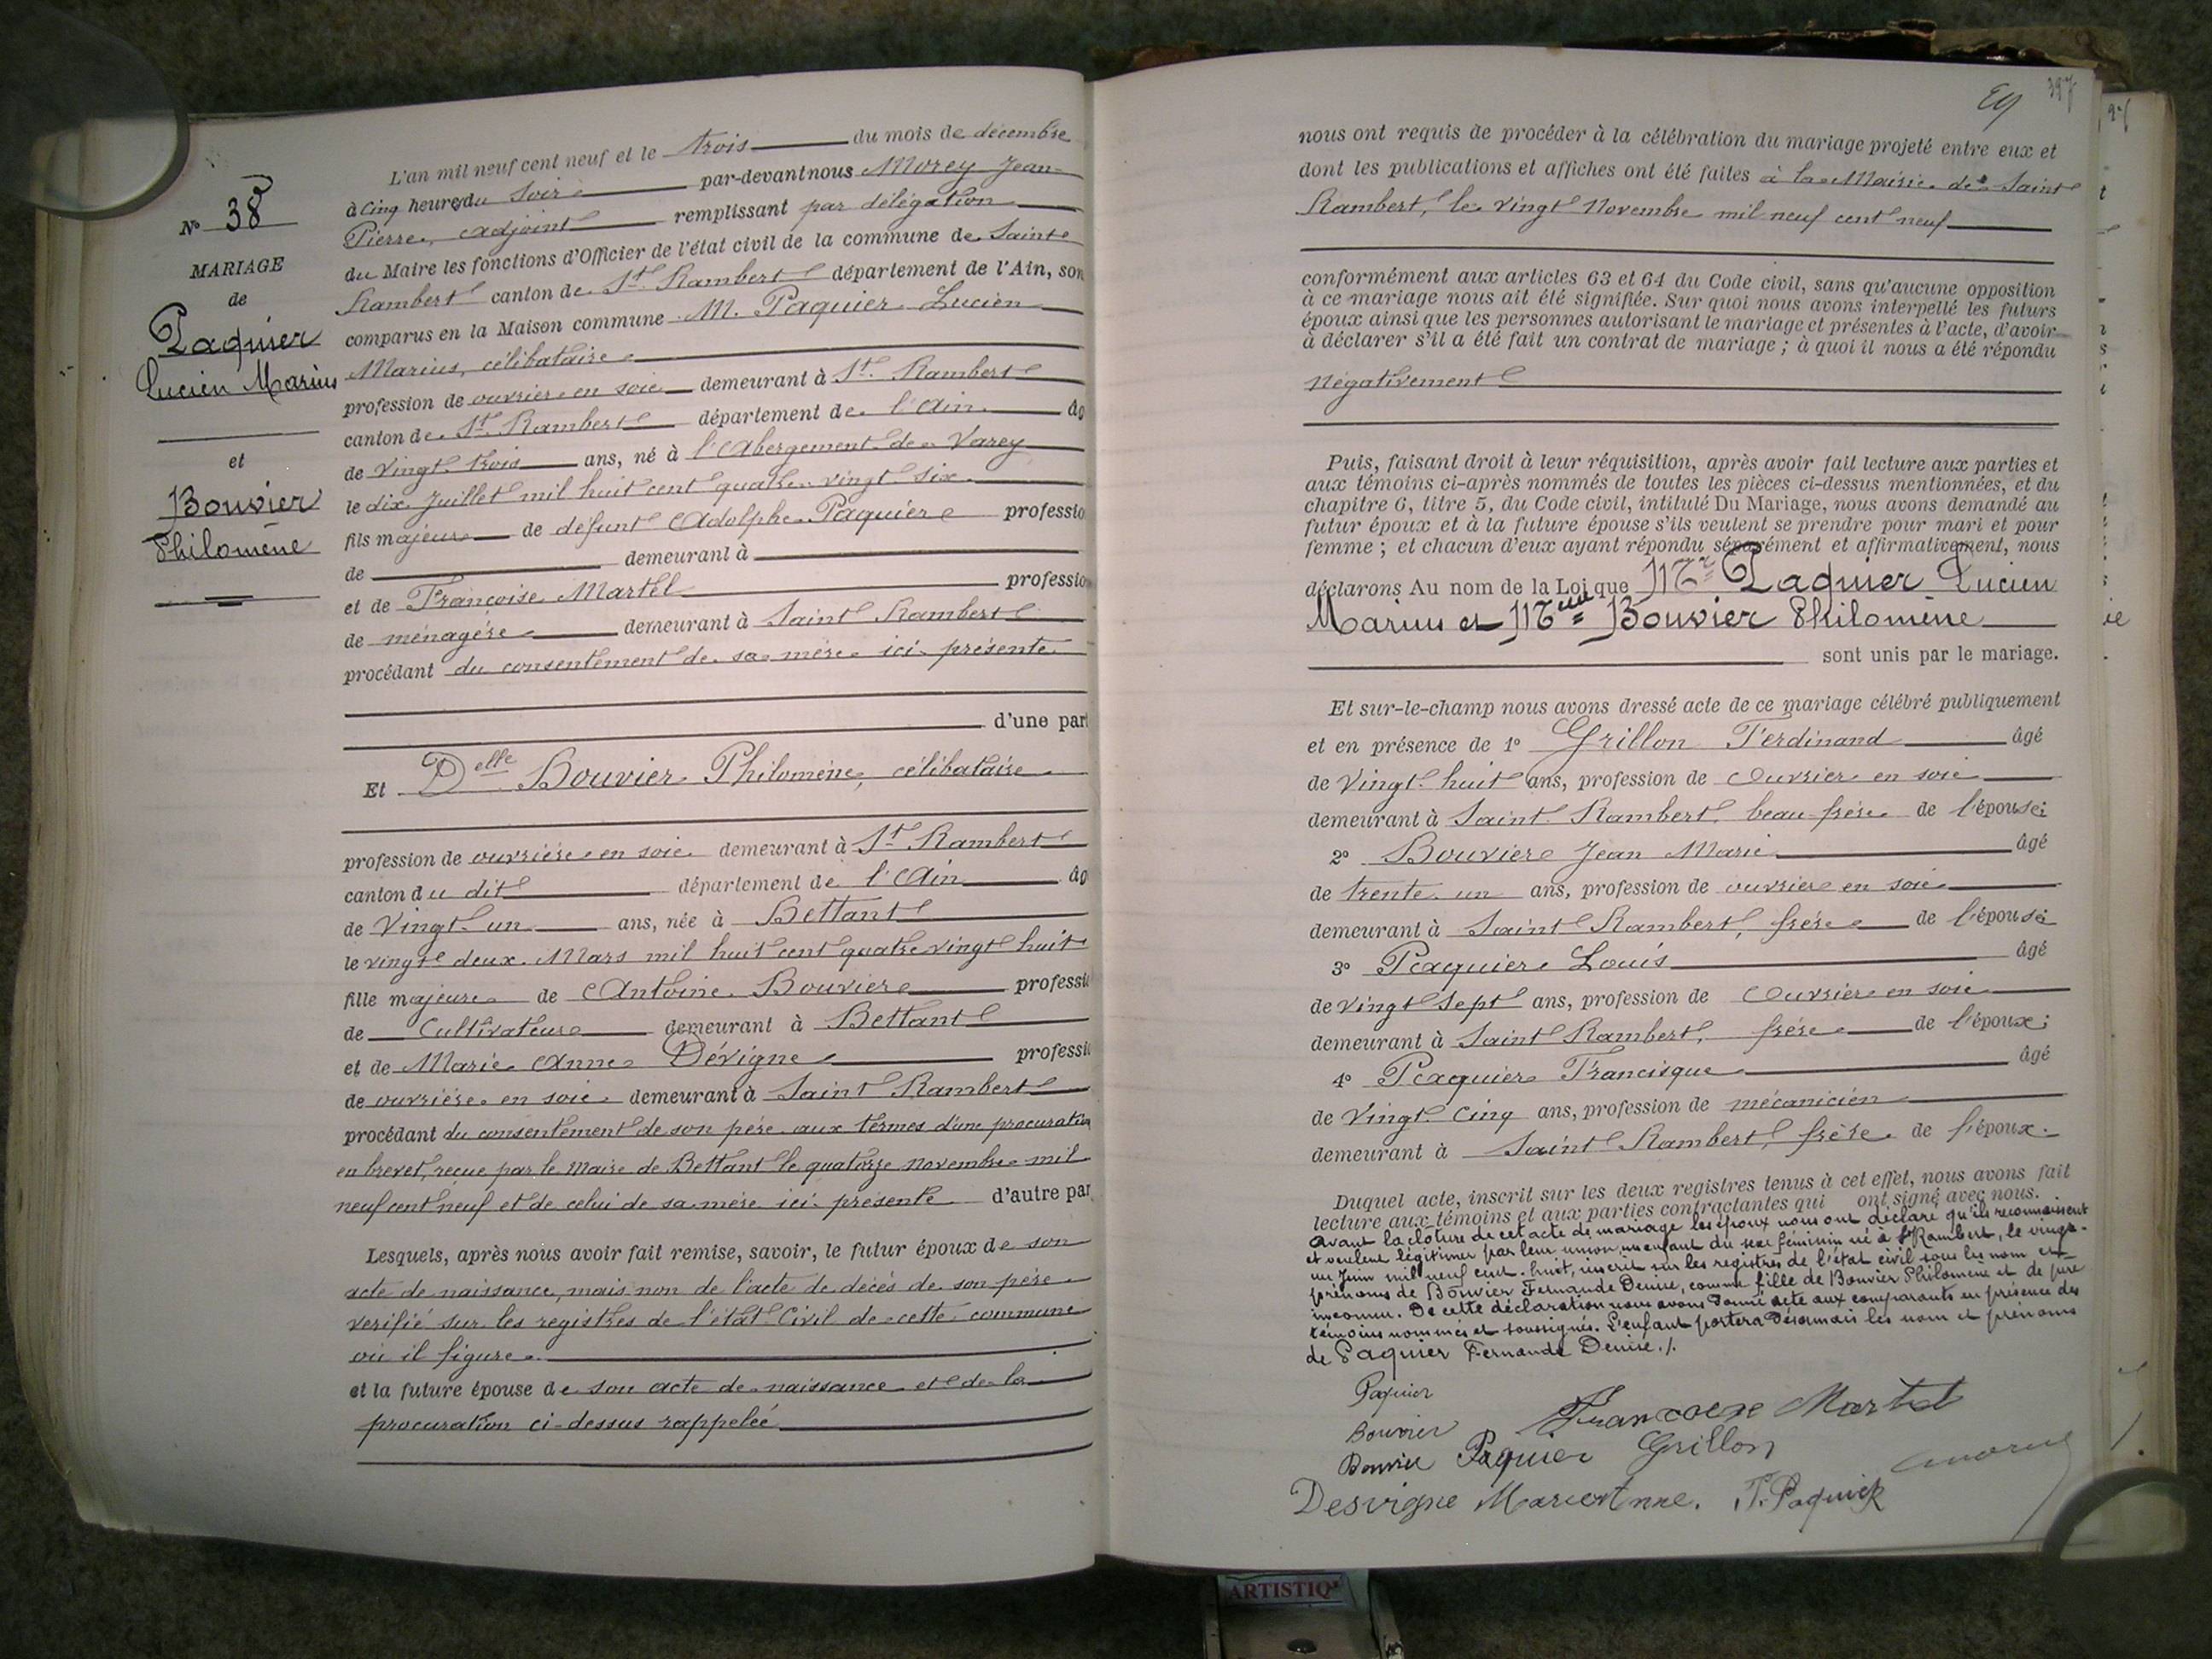 N° 38
MARIAGE
de
Paquier
Lucien Marius
et
Bouvier
Philomène
L'an mil neuf cent neuf et le trois du mois de décembre
à cinq heures du soir par-devant nous Morey Jean-
Pierre, adjoint remplissant par délégation
du Maire les fonctions d'Officier de l'état civil de la commune de Saint
Rambert canton de St. Rambert département de l'Ain, son
comparus en la Maison commune M. Paquier Lucien
Marius, célibataire
profession de ouvrier en soie demeurant à St. Rambert
canton de St. Rambert département de l'Ain âg
de vingt trois ans, né à l'Abergement de Varey
le dix Juillet mil huit cent quatre vingt six
fils majeur de défunt Adolphe Paquier professio
de demeurant à
et de Françoise Martel profession
de ménagère demeurant à Saint Rambert
procédant du consentement de sa mère ici présente
d'une part
Et Delle Bouvier Philomène, célibataire
profession de ouvrière en soie demeurant à St Rambert
canton du dit département de l'Ain âg
de Vingt un ans, née à Bettant
le vingt deux Mars mil huit cent quatre vingt huit
fille majeure de Antoine Bouvier professi
de Cultivateur demeurant à Bettant
et de Marie Anne Dévigne professi
de ouvrière en soie demeurant à Saint Rambert
procédant du consentement de son père aux termes d'une procuration
en brevet, reçue par le Maire de Bettant le quatorze novembre mil
neuf cent neuf et de celui de sa mère ici présente d'autre par
Lesquels, après nous avoir fait remise, savoir, le futur époux de son
acte de naissance, mais non de l'acte de décès de son père
vérifié sur les registres de l'état Civil de cette commune
où il figure
et la future épouse de son acte de naissance et de la
procuration ci-dessus rappelée
397
nous ont requis de procéder à la célébration du mariage projeté entre eux et
dont les publications et affiches ont été faites à la Mairie de Saint
Rambert, le vingt Novembre mil neuf cent neuf
conformément aux articles 63 et 64 du Code civil, sans qu'aucune opposition
à ce mariage nous ait été signifiée. Sur quoi nous avons interpellé les futurs
époux ainsi que les personnes autorisant le mariage et présentes à l'acte, d'avoir
à déclarer s'il a été fait un contrat de mariage ; à quoi il nous a été répondu
négativement
Puis, faisant droit à leur réquisition, après avoir fait lecture aux parties et
aux témoins ci-après nommés de toutes les pièces ci-dessus mentionnées, et du
chapitre 6, titre 5, du Code civil, intitulé Du Mariage, nous avons demandé au
futur époux et à la future épouse s'ils veulent se prendre pour mari et pour
femme ; et chacun d'eux ayant répondu séparément et affirmativement, nous
déclarons Au nom de la Loi que Mr Paquier Lucien
Marius et Melle Bouvier Philomène
sont unis par le mariage.
Et sur-le-champ nous avons dressé acte de ce mariage célébré publiquement
et en présence de 1° Grillon Ferdinand âgé
de Vingt huit ans, profession de Ouvrier en soie
demeurant à Saint Rambert, beau-frère de l'épouse;
2° Bouvier Jean Marie âgé
de trente un ans, profession de ouvrier en soie
demeurant à Saint Rambert, frère de l'épouse
3° Paquier Louis âgé
de vingt sept ans, profession de Ouvrier en soie
demeurant à Saint Rambert, frère de l'époux;
4° Paquier Francisque âgé
de Vingt Cinq ans, profession de mécanicien
demeurant à Saint Rambert, frère de l'époux.
Duquel acte, inscrit sur les deux registres tenus à cet effet, nous avons fait
lecture aux témoins et aux parties contractantes qui ont signé avec nous.
Avant la clôture de cet acte de mariage les époux nous ont déclaré qu'ils reconnaissent
et veulent légitimer par leur union, un enfant du sexe féminin né à St Rambert, le vingt-
un Juin mil neuf cent huit, inscrit sur les registres de l'état civil sous les nom et
prénoms de Bouvier Fernande Denise, comme fille de Bouvier Philomène et de père
inconnu. De cette déclaration nous avons donné acte aux comparants en présence des
témoins nommés et soussignés. L'enfant portera désormais les nom et prénoms
de Paquier Fernande Denise./.
Paquier
Bouvier Françoise Martel
Bouvier Paquier Grillon
Desvigne Marie Anne. F. Paquier
ARTISTIQ